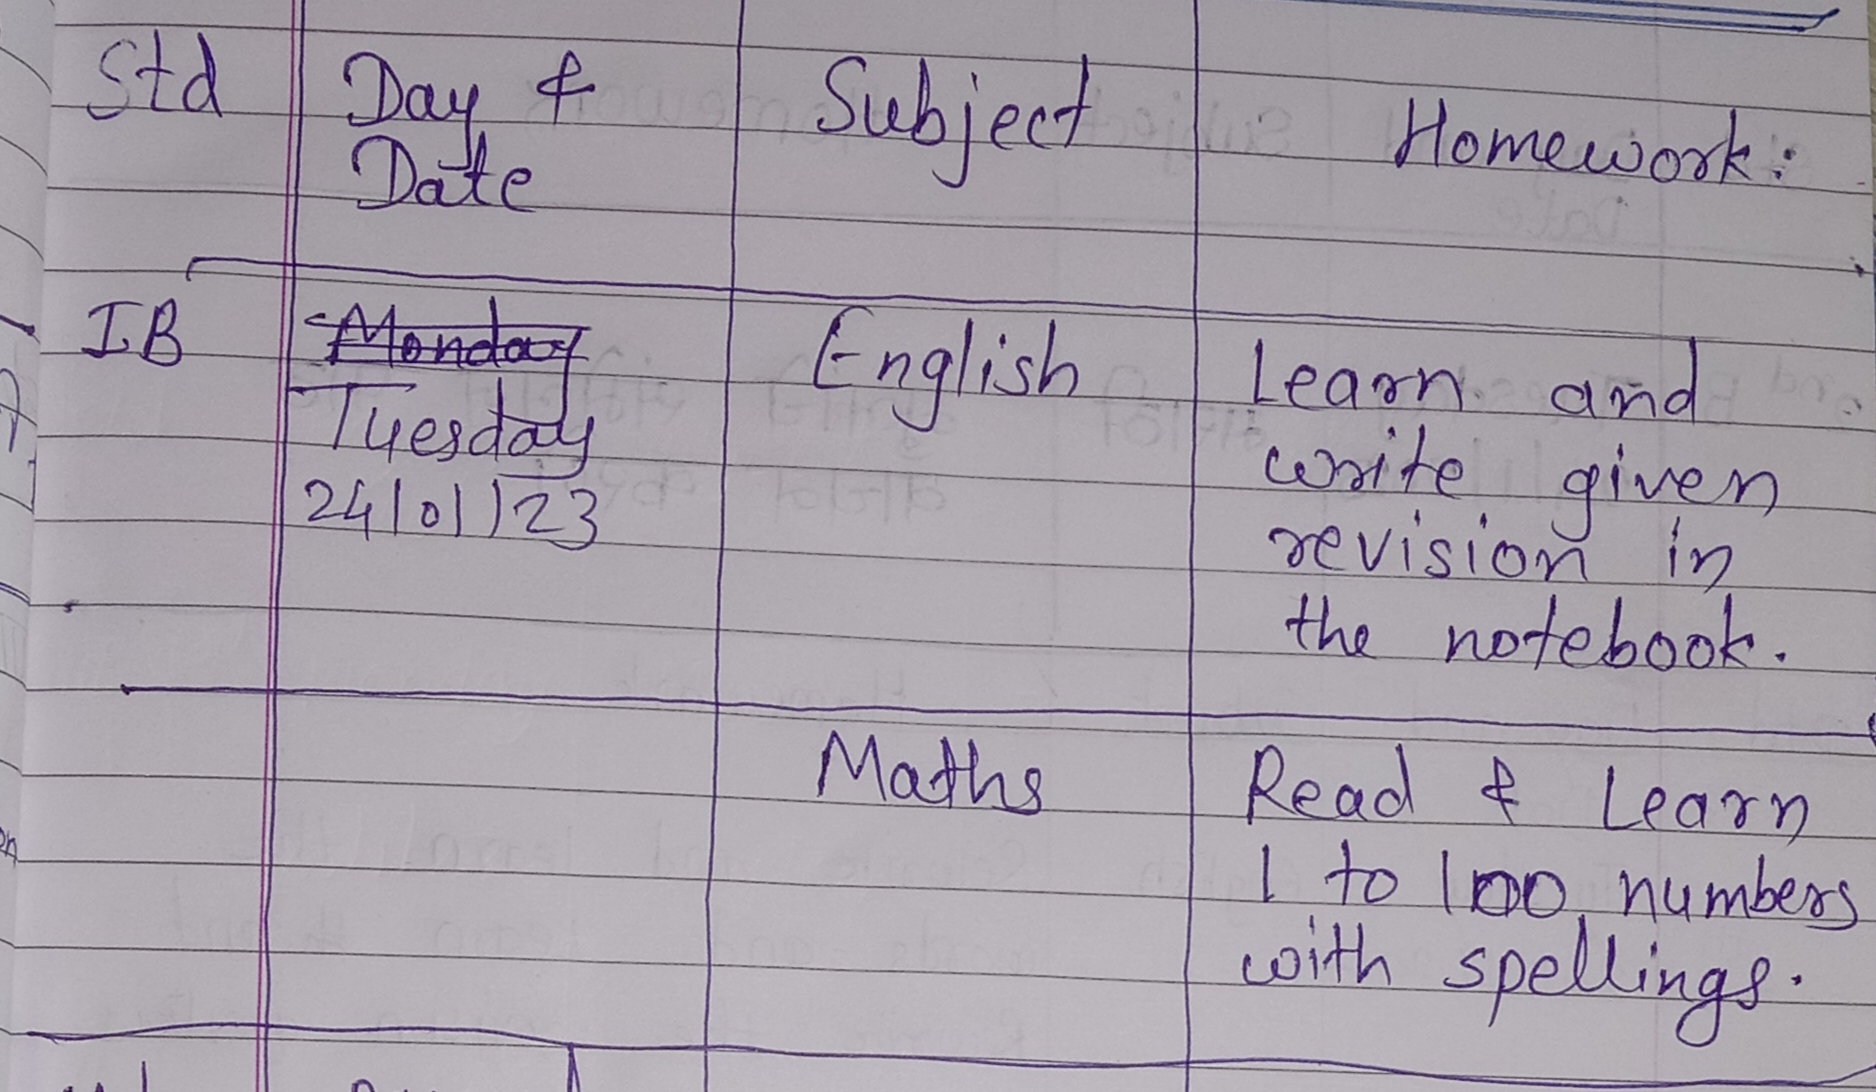 Std Day & Subject Homework:
Date
IB Monday English Learn and
Tuesday write given
24/01/23 revision in
the notebook.
Maths Read & Learn
1 to 100 numbers
with spellings.